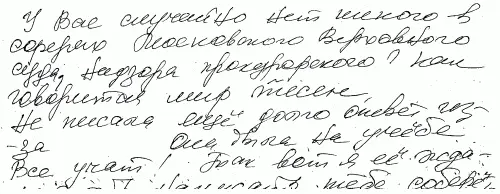 У Вас случайно нет никого в
сферах Московского Верховного
суда, надзора прокурорского? Как
говорится мир тесен.
Не писала ещё долго ответ из
-за Она была на учёбе
Все учат! Так вот я её жда-
Написать тебе